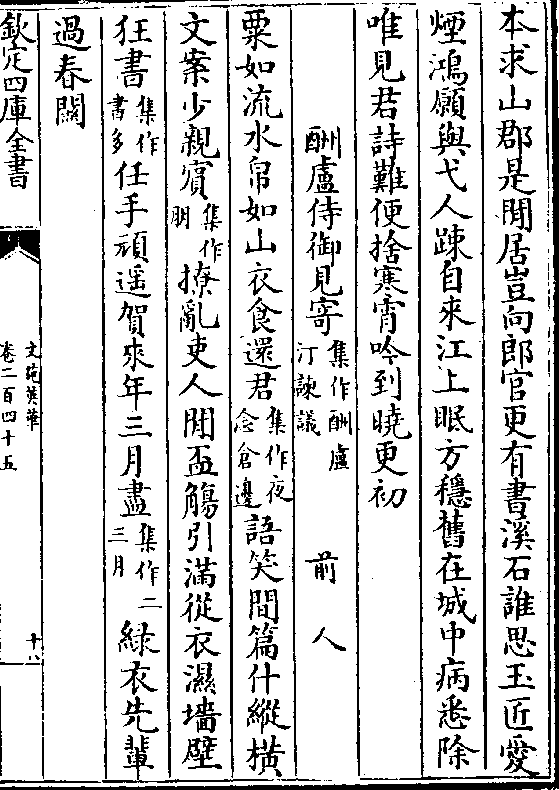 本求山郡是閒居豈向郎官更有書溪石誰思玉匠愛
煙鴻願與弋人疎自來江上眠方穩舊在城中病悉除
唯見君詩難便捨寒宵吟到曉更初
酬盧侍御見寄集作酬盧汀諫議 前人
粟如流水帛如山衣食還君集作夜念倉邊語笑間篇什縱横
文案少親賓集作朋撩亂吏人閒盃觴引滿從衣濕墻壁
狂書集作書多任手頑遥賀來年三月盡集作二三月緑衣先輩
過春闗
欽定四庫全書
文苑英華
卷二百四十五
十八